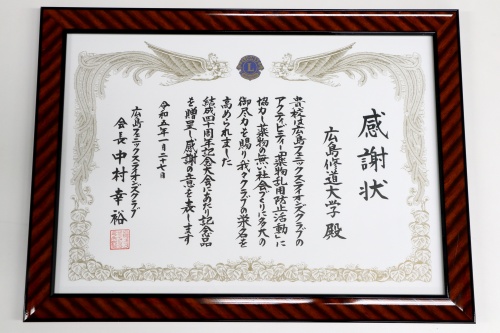 感謝状
広島修道大学 殿
貴校は広島フェニックスライオンズクラブの
アクティビティー「薬物乱用防止活動」に
協力し薬物の無い社会づくりに多大の
御尽力を賜り我々クラブの栄名を
高められました
結成四十周年記念大会にあたり記念品
を贈呈し感謝の意を表します
令和五年一月二十七日
広島フェニックスライオンズクラブ
会長 中村 幸裕